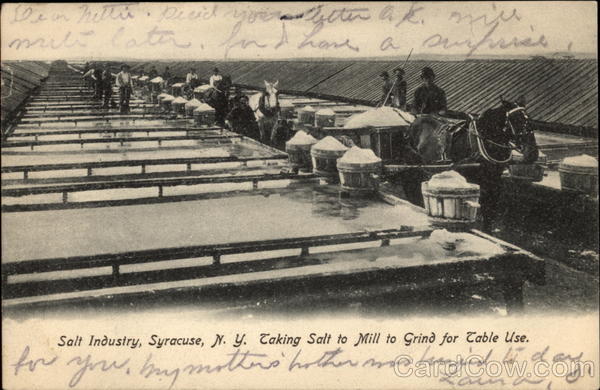 Dear Nettie. Rec'd your letter O.K. will
write later. for I have a surprise
Salt Industry, Syracuse, N. Y. Taking Salt to Mill to Grind for Table Use.
for you. My mother's brother was to day,
Laura,
CardCow.com